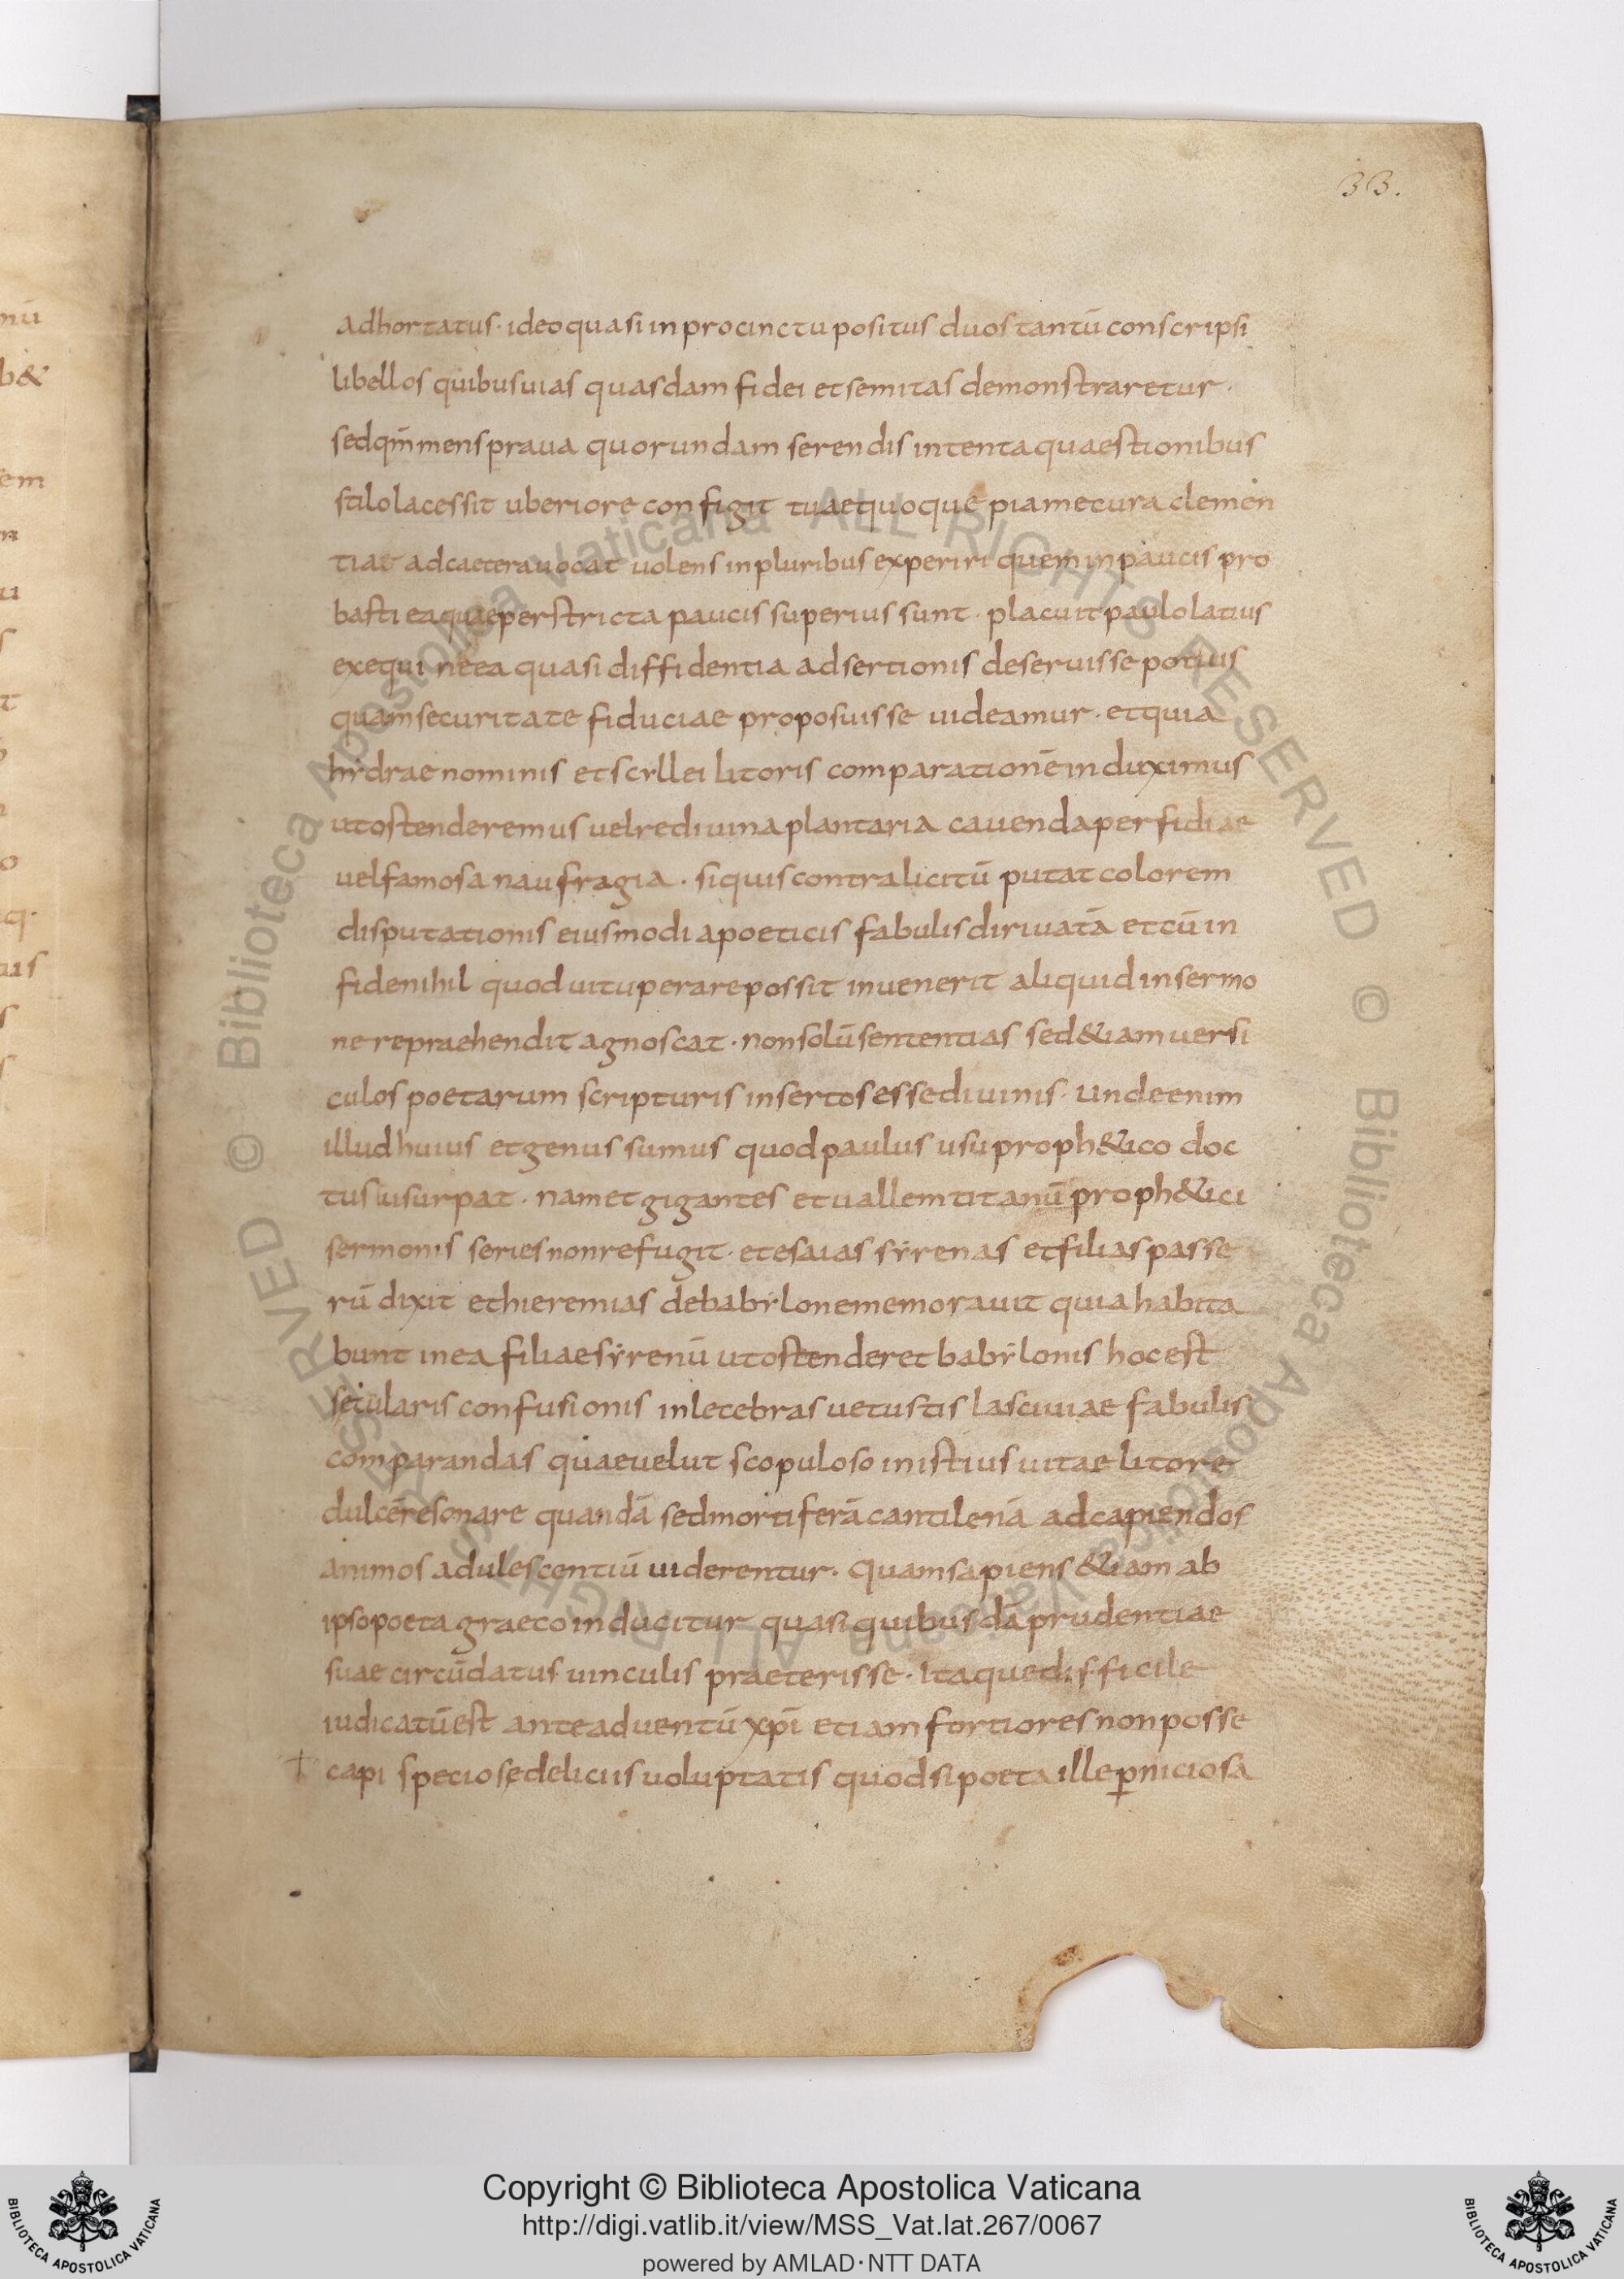 33.
adhortatus · ideo quasi in procinctu positus duos tantū conscripsi
libellos quibus uias quasdam fidei et semitas demonstraretur ·
sed qm̄ mens praua quorundam serendis intenta quaestionibus
stilo lacessit uberiore configit tuae quoque pia me cura clemen
tiae ad caetera uocat uolens in pluribus experiri quem in paucis pro
basti ea quae perstricta paucis superius sunt · placuit paulo latius
exequi ne ea quasi diffidentia adsertionis deseruisse potius
quam securitate fiduciae proposuisse uideamur · et quia
hẏdrae nominis et scyllei litoris comparationē induximus
ut ostenderemus uel rediuiua plantaria cauenda perfidiae
uel famosa naufragia · si quis contra licitū putat colorem
disputationis eiusmodi a poeticis fabulis diriuatā et cū in
fide nihil quod uituperare possit inuenerit aliquid in sermo
ne repraehendit agnoscat · non solū sententias sed &iam uersi
culos poetarum scripturis insertos esse diuinis · unde enim
illud huius et genus sumus quod paulus usu proph&ico doc
tus usurpat · nam et gigantes et uallem titanū proph&ici
sermonis series non refugit · et esaias sẏrenas et filias passe
rū dixit et hieremias de babẏlone memorauit quia habita
bunt in ea filiae sẏrenū ut ostenderet babẏlonis hoc est
sęcularis confusionis inlecebras uetustis lasciuiae fabulis
comparandas quae uelut scopuloso in istius uitae litore
dulcē resonare quandā sed mortiferā cantilenā ad capiendos
animos adulescentiū uiderentur · quam sapiens &iam ab
ipso poeta graeco inducitur quasi quibusdā prudentiae
suae circūdatus uinculis praeterisse · Itaque difficile
iudicatū est ante aduentū xp̄i etiam fortiores non posse
capi speciosę deliciis uoluptatis quod si poeta ille p̲niciosa
Copyright © Biblioteca Apostolica Vaticana
http://digi.vatlib.it/view/MSS_Vat.lat.267/0067
powered by AMLAD · NTT DATA
BIBLIOTECA APOSTOLICA VATICANA
BIBLIOTECA APOSTOLICA VATICANA
© Biblioteca Apostolica Vaticana ALL RIGHTS RESERVED © Biblioteca Apostolica Vaticana ALL RIGHTS RESERVED